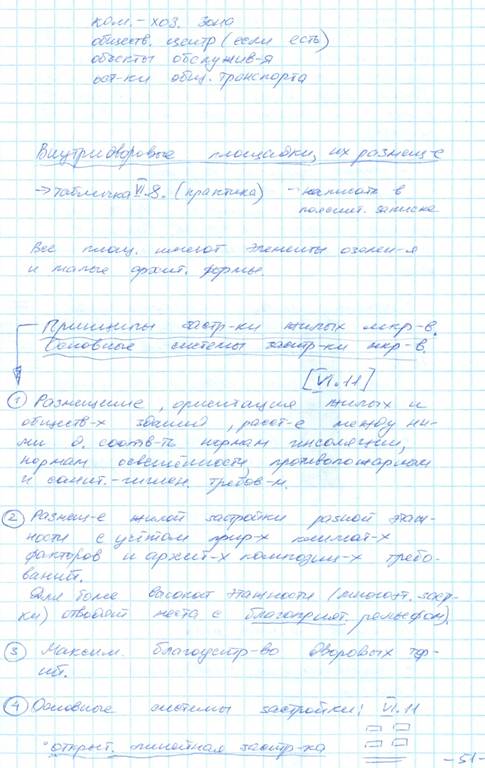 ком.-хоз. зона
обществ. центр (если есть)
объекты обслужив-я
ост-ки общ. транспорта
Внутридворовые площадки, их размещ-е
→ табличка VI.8. (практика) - написать в
пояснит. записке
Все площ. имеют элементы озелен-я
и малые архит. формы
Принципы застр-ки жилых мкр-в.
Основные системы застр-ки мкр-в.
[VI.11]
① Размещение, ориентация жилых и
обществ-х зданий, расст-е между ни-
ми д. соотв-ть нормам инсоляции,
нормам освещённости, противопожарным
и санит.-гигиен. требов-м.
② Размещ-е жилой застройки разной этаж-
ности с учётом прир-х климат-х
факторов и архит-х композиц-х требо-
ваний.
Для более высокой этажности (многоэт. заст-
ки) отводят места с благоприят. рельефом).
③ Максим. благоустр-во дворовых тер-
рит.
④ Основные системы застройки: VI.11
открыт. линейная застр-ка
-51-